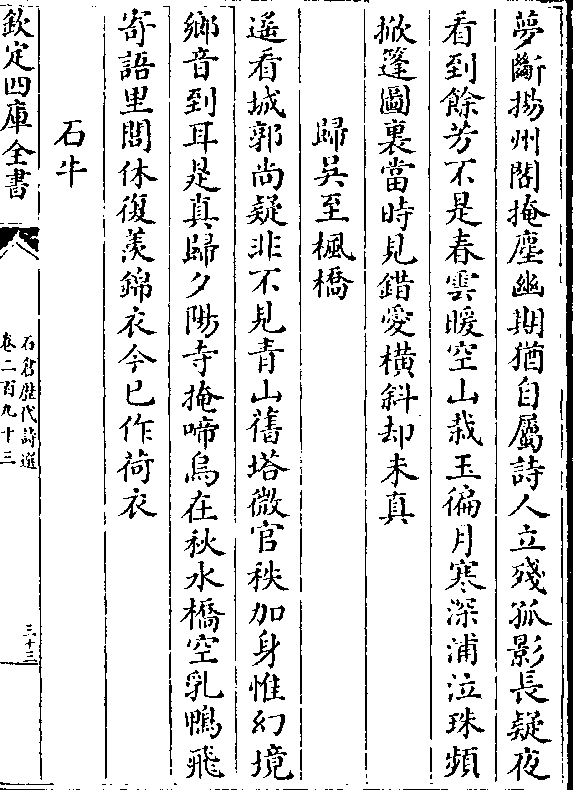 夢斷揚州閣掩塵幽期猶自屬詩人立殘孤影長疑夜
看到餘芳不是春雲暖空山栽玉徧月寒深浦泣珠頻
掀篷圖裏當時見錯愛橫斜却未真
歸吳至楓橋
遥看城郭尚疑非不見青山舊塔微官秩加身惟幻境
鄉音到耳是真歸夕陽寺掩啼烏在秋水橋空乳鴨飛
寄語里閭休復羨錦衣今已作荷衣
石牛
欽定四庫全書
石倉歴代詩選
卷二百九十三
三十三